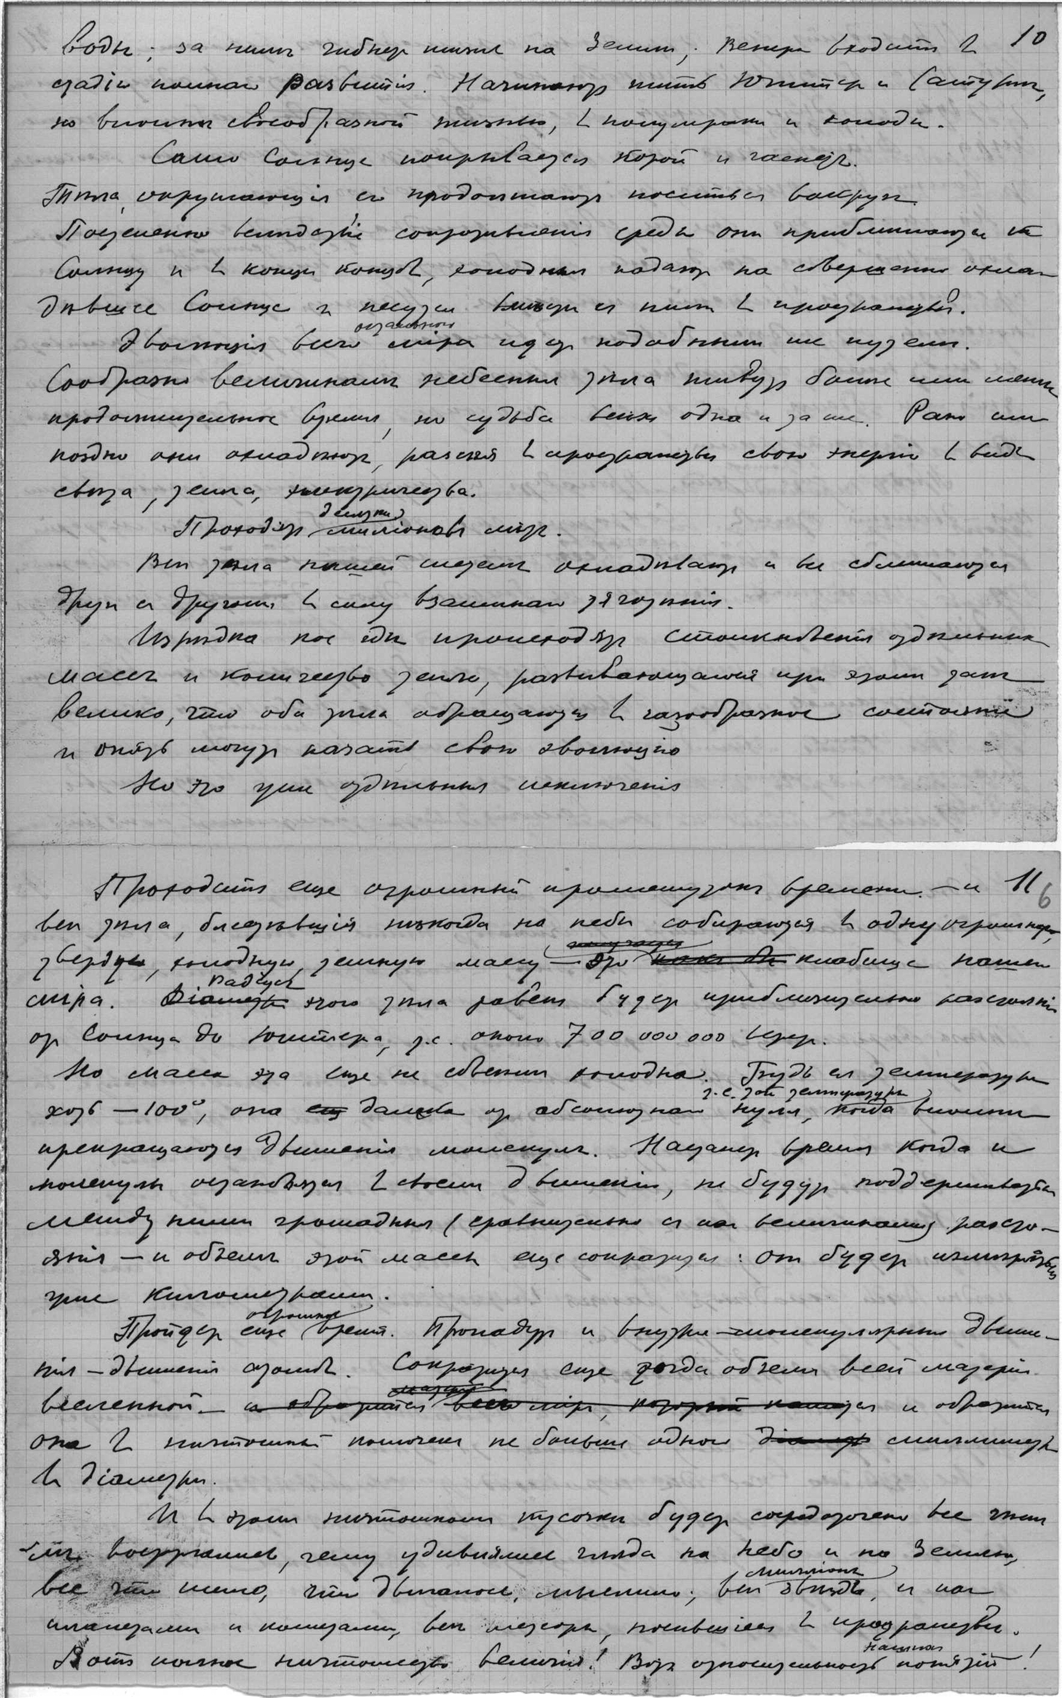 воды; за нимъ гибнетъ жизнь на Землѣ; Венера входитъ въ 10
стадію полнаго развитія. Начинаютъ жить Юпитеръ и Сатурнъ,
но вполнѣ своеобразной жизнью, въ полумракѣ и холодѣ.
Само Солнце покрывается корой и гаснетъ.
Тѣла, окружающія его продолжаютъ носиться вокругъ.
Постепенно вслѣдствіе сопротивленія среды они приближаются къ
Солнцу и въ концѣ концовъ, холодныя падаютъ на совершенно охла-
дѣвшее Солнце и несутся вмѣстѣ съ нимъ въ пространствѣ.
Эволюція всего остального міра идетъ подобнымъ же путемъ.
Сообразно величинамъ небесныя тѣла живутъ болѣе или менѣе
продолжительное время, но судьба всѣхъ одна и та же. Рано или
поздно они охладѣютъ, разсѣявъ въ пространствѣ свою энергію въ видѣ
свѣта, тепла, электричества.
Проходятъ десятки милліоновъ лѣтъ.
Всѣ тѣла нашей системы охладѣваютъ и все сближаются
другъ съ другомъ въ силу взаимнаго тяготѣнія.
Изрѣдка кое гдѣ происходятъ столкновенія отдѣльныхъ
массъ и количество тепла, развивающагося при этомъ такъ
велико, что оба тѣла обращаются въ газообразное состояніе
и опять могутъ начать свою эволюцію
Но это уже отдѣльныя исключенія
Проходитъ еще огромный промежутокъ времени — и 11 6
всѣ тѣла, блестѣвшія нѣкогда на небѣ собираются въ одну огромную,
твердую, холодную, темную массу — это кладбище нашего
міра. Радіусъ Діаметръ этого тѣла равенъ будетъ приблизительно разстоянію
отъ Солнца до Юпитера, т.е. около 700 000 000 верст.
Но масса эта еще не совсѣмъ холодна. Будь ея температура
хоть — 100°, она еще далека отъ абсолютнаго нуля, т.е. той температуры, когда вполнѣ
прекращаются движенія молекулъ. Настанетъ время когда и
молекулы остановятся въ своемъ движеніи, не будутъ поддерживаться
между ними громадныя (сравнительно съ ихъ величинами) разсто-
янія — и объемъ этой массы еще сократится: онъ будетъ измѣряться
уже километрами.
Пройдетъ еще огромное время. Пропадутъ и внутри-молекулярныя движе-
нія — движенія атомовъ. Сократится еще тогда объемъ всей матеріи
вселенной — и обратится весь міръ, который и обратится
она въ ничтожный комочекъ не больше одного діаметръ миллиметра
въ діаметрѣ.
И въ этомъ ничтожномъ кусочкѣ будетъ сосредоточено все чѣмъ
мы восторгались, чему удивлялись глядя на небо и на Землю,
все что жило, что двигалось, мыслило; всѣ милліоны звѣздъ, и ихъ
планетами и кометами, всѣ метеоры, носившіеся въ пространствѣ.
Вотъ полное ничтожество величія! Вотъ относительность нашихъ понятій!